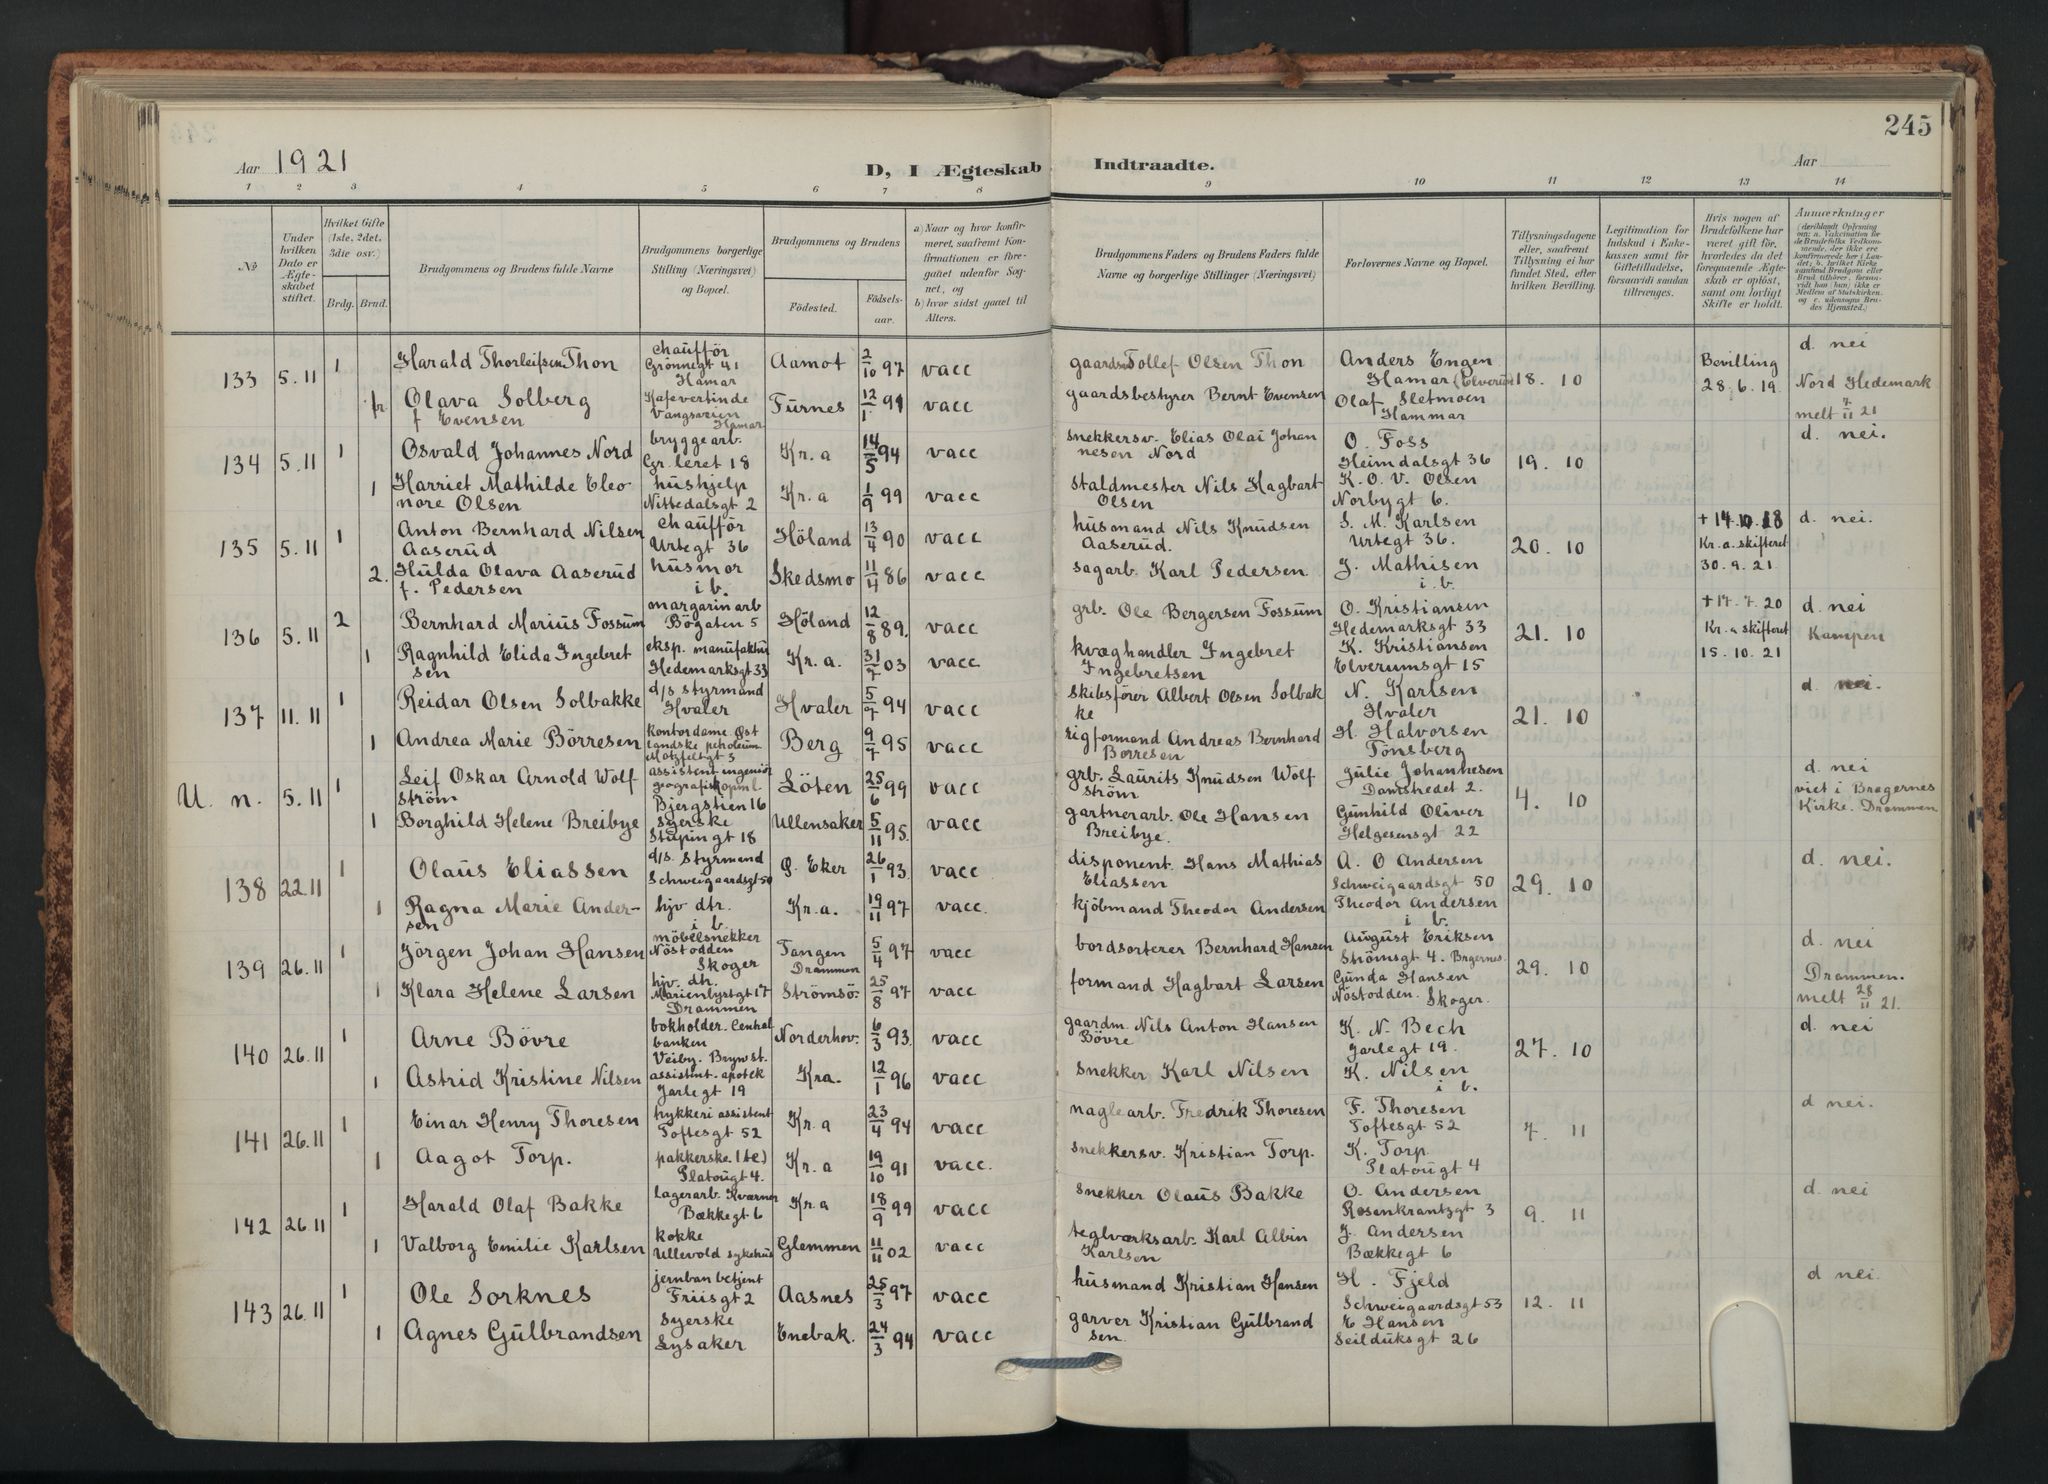 245
Aar 1921
D, I Ægteskab Indtraadte.
Aar
1 2 3 4 5 6 7 8 9 10 11 12 13 14
№
Under hvilken Dato er Ægteskabet stiftet.
Hvilket Gifte (1ste, 2det, 3die osv.)
Brdg. Brud.
Brudgommens og Brudens fulde Navne
Brudgommens borgerlige Stilling (Næringsvei) og Bopæl.
Brudgommens og Brudens
Födested. Födselsaar.
a) Naar og hvor konfirmeret, saafremt Konfirmationen er foregaaet udenfor Sognet, og
b) hvor sidst gaaet til Alters.
Brudgommens Faders og Brudens Faders fulde Navne og borgerlige Stillinger (Næringsvei)
Forlovernes Navne og Bopæl.
Tillysningsdagene eller, saafremt Tillysning ei har fundet Sted, efter hvilken Bevilling.
Legitimation for Indskud i Enkekassen samt for Giftetilladelse, forsaavidt saadan tiltrænges.
Hvis nogen af Brudefolkene har været gift før, hvorledes da det foregaaende Ægteskab er oplöst, samt om lovligt Skifte er holdt.
Anmærkninger
133 5.11 1 Harald Thorleifsen Thon chauffør Grönnegt 41 Hamar Aamot 2/10 97 vacc gaardm Tollef Olsen Thon Anders Engen Hamar (Elverum 18. 10 Bevilling 28.6.19. d. nei
fr. Olava Solberg f Evensen Kafevertinde Vangsveien Hamar Furnes 12/1 91 vacc gaardsbestyrer Bernt Evensen Olaf Sletmoen Hammar Nord Hedemark melt 7/11 21
134 5.11 1 Osvald Johannes Nord bryggearb. Gr. leret 18 Kr.a 14/5 94 vacc snekkersv. Elias Olai Johannesen Nord O. Foss Heimdalsgt 36 19. 10 d. nei.
1 Harriet Mathilde Eleonore Olsen hushjelp Nittedalsgt 2 Kr.a 1/9 99 vacc staldmester Nils Hagbart Olsen K. O. V. Olsen Norbygt 6.
135 5.11 1 Anton Bernhard Nilsen Aaserud chauffør Urtegt 36 Höland 13/4 90 vacc husmand Nils Knudsen Aaserud. S. M. Karlsen Urtegt 36. 20. 10 + 14.10.18 Kr.a. skifteret 30.9.21. d. nei.
2. Hulda Olava Aaserud f. Pedersen husmor i b. Skedsmo 11/4 86 vacc sagarb. Karl Pedersen J. Mathisen i. b.
136 5.11 2 Bernhard Marius Fossum margarinarb Bögaten 5 Höland 12/8 89. vacc grb. Ole Bergersen Fossum O. Kristiansen Hedemarksgt 33 21. 10 + 17.7.20 Kr.a skifteret 15.10.21 d. nei Kampen
1 Ragnhild Elida Ingebretsen eksp. manufaktur Hedemarksgt 33 Kr.a. 31/7 03 vacc kvæghandler Ingebret Ingebretsen K. Kristiansen Elverumsgt 15
137 11.11 1 Reidar Olsen Solbakke d/s styrmand Hvaler Hvaler 5/7 94 vacc skibsfører Albert Olsen Solbakke N. Karlsen Hvaler 21. 10 d. nei.
1 Andrea Marie Börresen kontordame Østlandske petroleum Motzfeldtgt 3 Berg 9/7 95 vacc rigformand Andreas Bernhard Borresen H. Halvorsen Tønsberg
U. n. 5.11 1 Leif Oskar Arnold Wolfström assistent ingeniör geografisk opml. Bjergstien 16 Löten 25/6 99 vacc grb. Laurits Knudsen Wolfström Julie Johannesen Damstredet 2. 4. 10 d. nei viet i Bragernes Kirke. Drammen
1 Borghild Helene Breibye syerske Stupingt 18 Ullensaker 5/11 95. vacc gartnerarb. Ole Hansen Breibye. Gunhild Oliver Helgesensgt 22
138 22.11 1 Olaus Eliassen d/s. styrmand Schweigaardsgt 50 Ø. Eker 26/1 93. vacc disponent. Hans Mathias Eliassen A. O Andersen Schweigaardsgt 50 29. 10 d. nei.
1 Ragna Marie Andersen hjv dtr. i b. Kr.a. 19/11 97 vacc. kjöbmand Theodor Andersen Theodor Andersen i b.
139 26.11 1 Jörgen Johan Hansen möbelsnekker Nöstodden Skoger Tangen Drammen 5/4 97 vacc bordsorterer Bernhard Hansen August Eriksen Strömsgt 4. Brgernes. 29. 10 d. nei
1 Klara Helene Larsen hjv. dtr. Marienlystgt 17 Drammen Strömsö. 25/8 97 vacc formand Hagbart Larsen Gunda Hansen Nöstodden. Skoger. Drammen. melt 28/11 21.
140 26.11 1 Arne Bövre bokholder. Centralbanken Veiby. Brynst. Norderhov. 6/3 93. vacc gaardm. Nils Anton Hansen Bövre K. N. Bech Jarlegt 19. 27. 10 d. nei
1 Astrid Kristine Nilsen assistent. apotek Jarlegt 19 Kra. 12/1 96 vacc snekker Karl Nilsen K. Nilsen i b.
141 26.11 1 Einar Henry Thoresen trykkeri assistent Toftesgt 52 Kr.a 23/4 94 vacc naglearb. Fredrik Thoresen F. Thoresen Toftesgt 52 7. 11 d nei.
1 Aagot Torp. pakkerske. (te) Platougt 4. Kr.a 19/10 91 vacc. snekkersv. Kristian Torp. K. Torp. Platougt 4
142 26.11 1 Harald Olaf Bakke lagerarb. Kværner Bækkegt 6 Kr.a 18/9 99 vacc snekker Olaus Bakke O. Andersen Rosenkrantzgt 3 9. 11 d. nei
1 Valborg Emilie Karlsen kokke Ullevold sykehus Glemmen 11/11 02 vacc teglværksarb. Karl Albin Karlsen J. Andersen Bækkegt 6
143 26.11 1 Ole Sorknes jernban betjent Friisgt 2 Aasnes 25/3 97 vacc husmand Kristian Hansen H. Fjeld Schweigaardsgt 53 12. 11 d nei.
1 Agnes Gulbrandsen syerske Lysaker Enebak. 24/3 94 vacc garver Kristian Gulbrandsen. E Hansen Seilduksgt 26